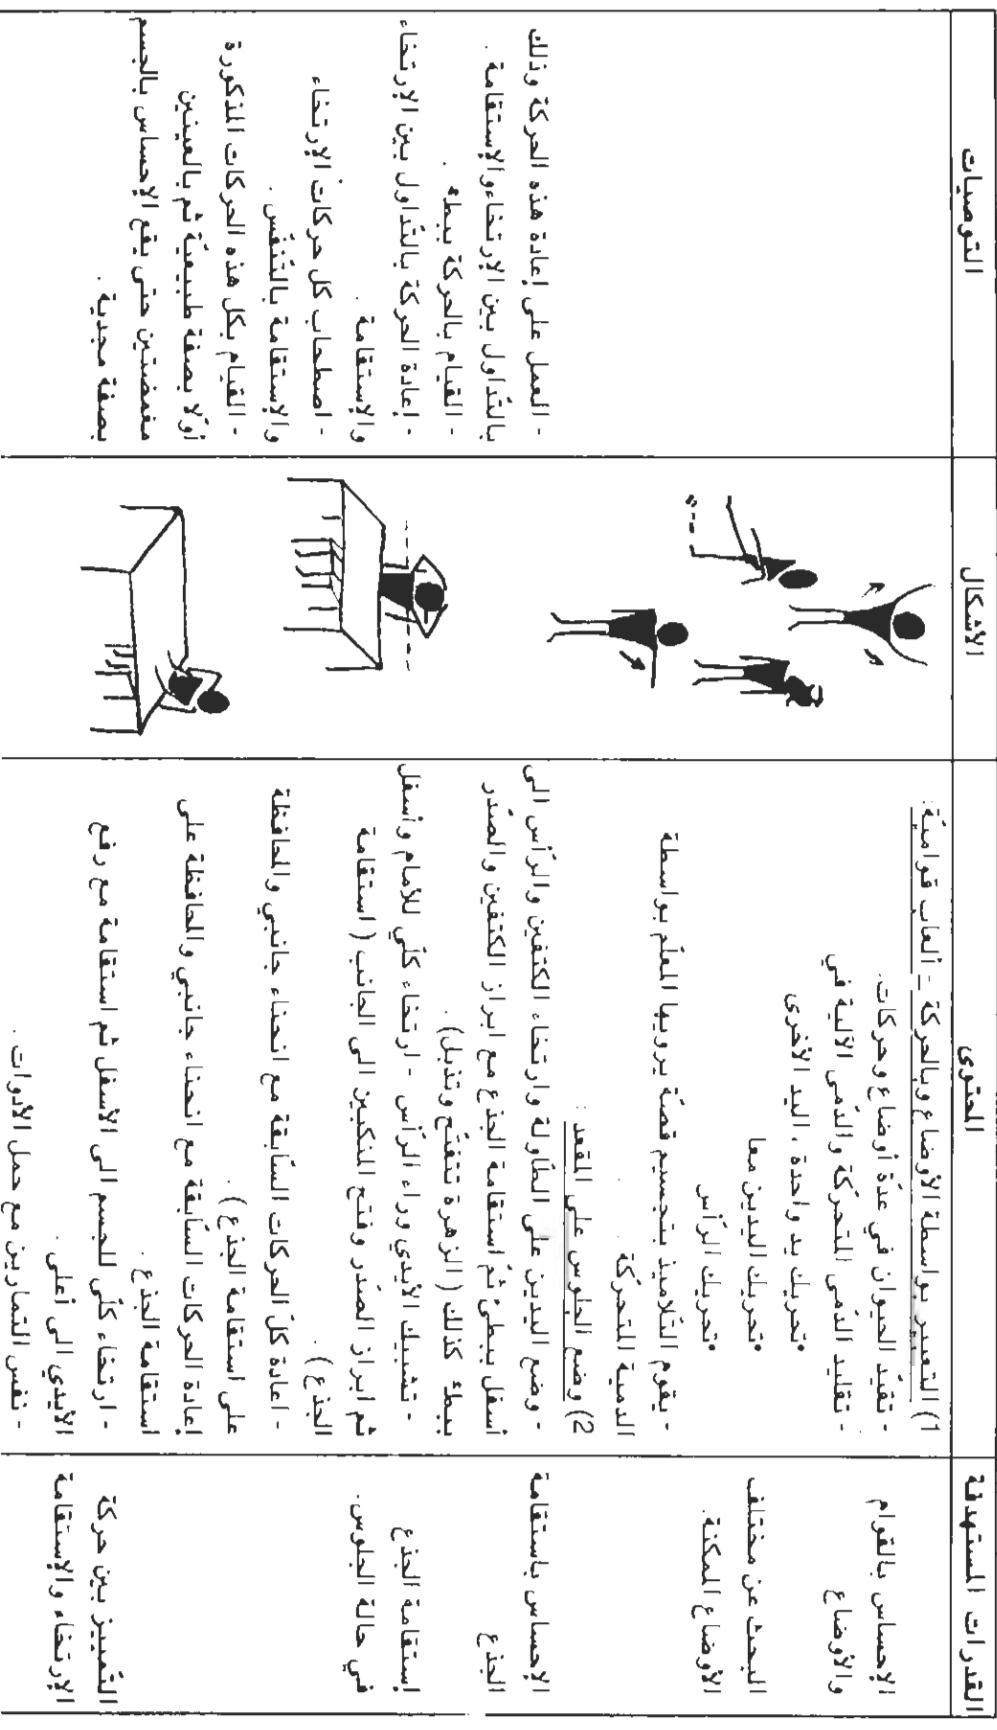 القدرات المستهدفة
المحتوى
الأشكال
التوصيات
الإحساس بالقوام
والأوضاع
البحث عن مختلف
الأوضاع الممكنة.
الإحساس باستقامة
الجذع
إستقامة الجذع
في حالة الجلوس.
التمييز بين حركة
الإرتخاء والإستقامة
1) التعبير بواسطة الأوضاع وبالحركة - ألعاب قواميّة:
- تقيّد الحيوان في عدّة أوضاع وحركات.
- تقليد الدّمى المتحركة والدّمى الآلية في
• تحريك يد واحدة، اليد الأخرى
• تحريك اليدين معا
• تحريك الرّأس
- يقوم التّلاميذ بتجسيم قصّة يرويها المعلّم بواسطة
الدمية المتحركة.
2) وضع الجلوس على المقعد:
- وضع اليدين على الطّاولة وارتخاء الكتفين والرّأس الى
أسفل ببطئ ثمّ استقامة الجذع مع ابراز الكتفين والصّدر
ببطء كذلك (الزهرة تتفتّح وتذبل).
- تشبيك الأيدي وراء الرّأس - ارتخاء كلّي للأمام وأسفل
ثم ابراز الصّدر وفتح المنكبين الى الجانب (استقامة
الجذع).
- اعادة كلّ الحركات السّابقة مع انحناء جانبي والمحافظة
على استقامة الجذع).
إعادة الحركات السّابقة مع انحناء جانبي والمحافظة على
استقامة الجذع.
- ارتخاء كلّي للجسم الى الأسفل ثم استقامة مع رفع
الأيدي الى أعلى.
- نفس التمارين مع حمل الأدوات.
- العمل على إعادة هذه الحركة وذلك
بالتّداول بين الإرتخاء والإستقامة.
- القيام بالحركة ببطء.
- إعادة الحركة بالتّداول بين الإرتخاء
والإستقامة.
- اصطحاب كل حركات الإرتخاء
والإستقامة بالتّنفّس.
- القيام بكل هذه الحركات المذكورة
أوّلا بصفة طبيعيّة ثم بالعينين
مغمضتين حتى يقع الإحساس بالجسم
بصفة مجدية.